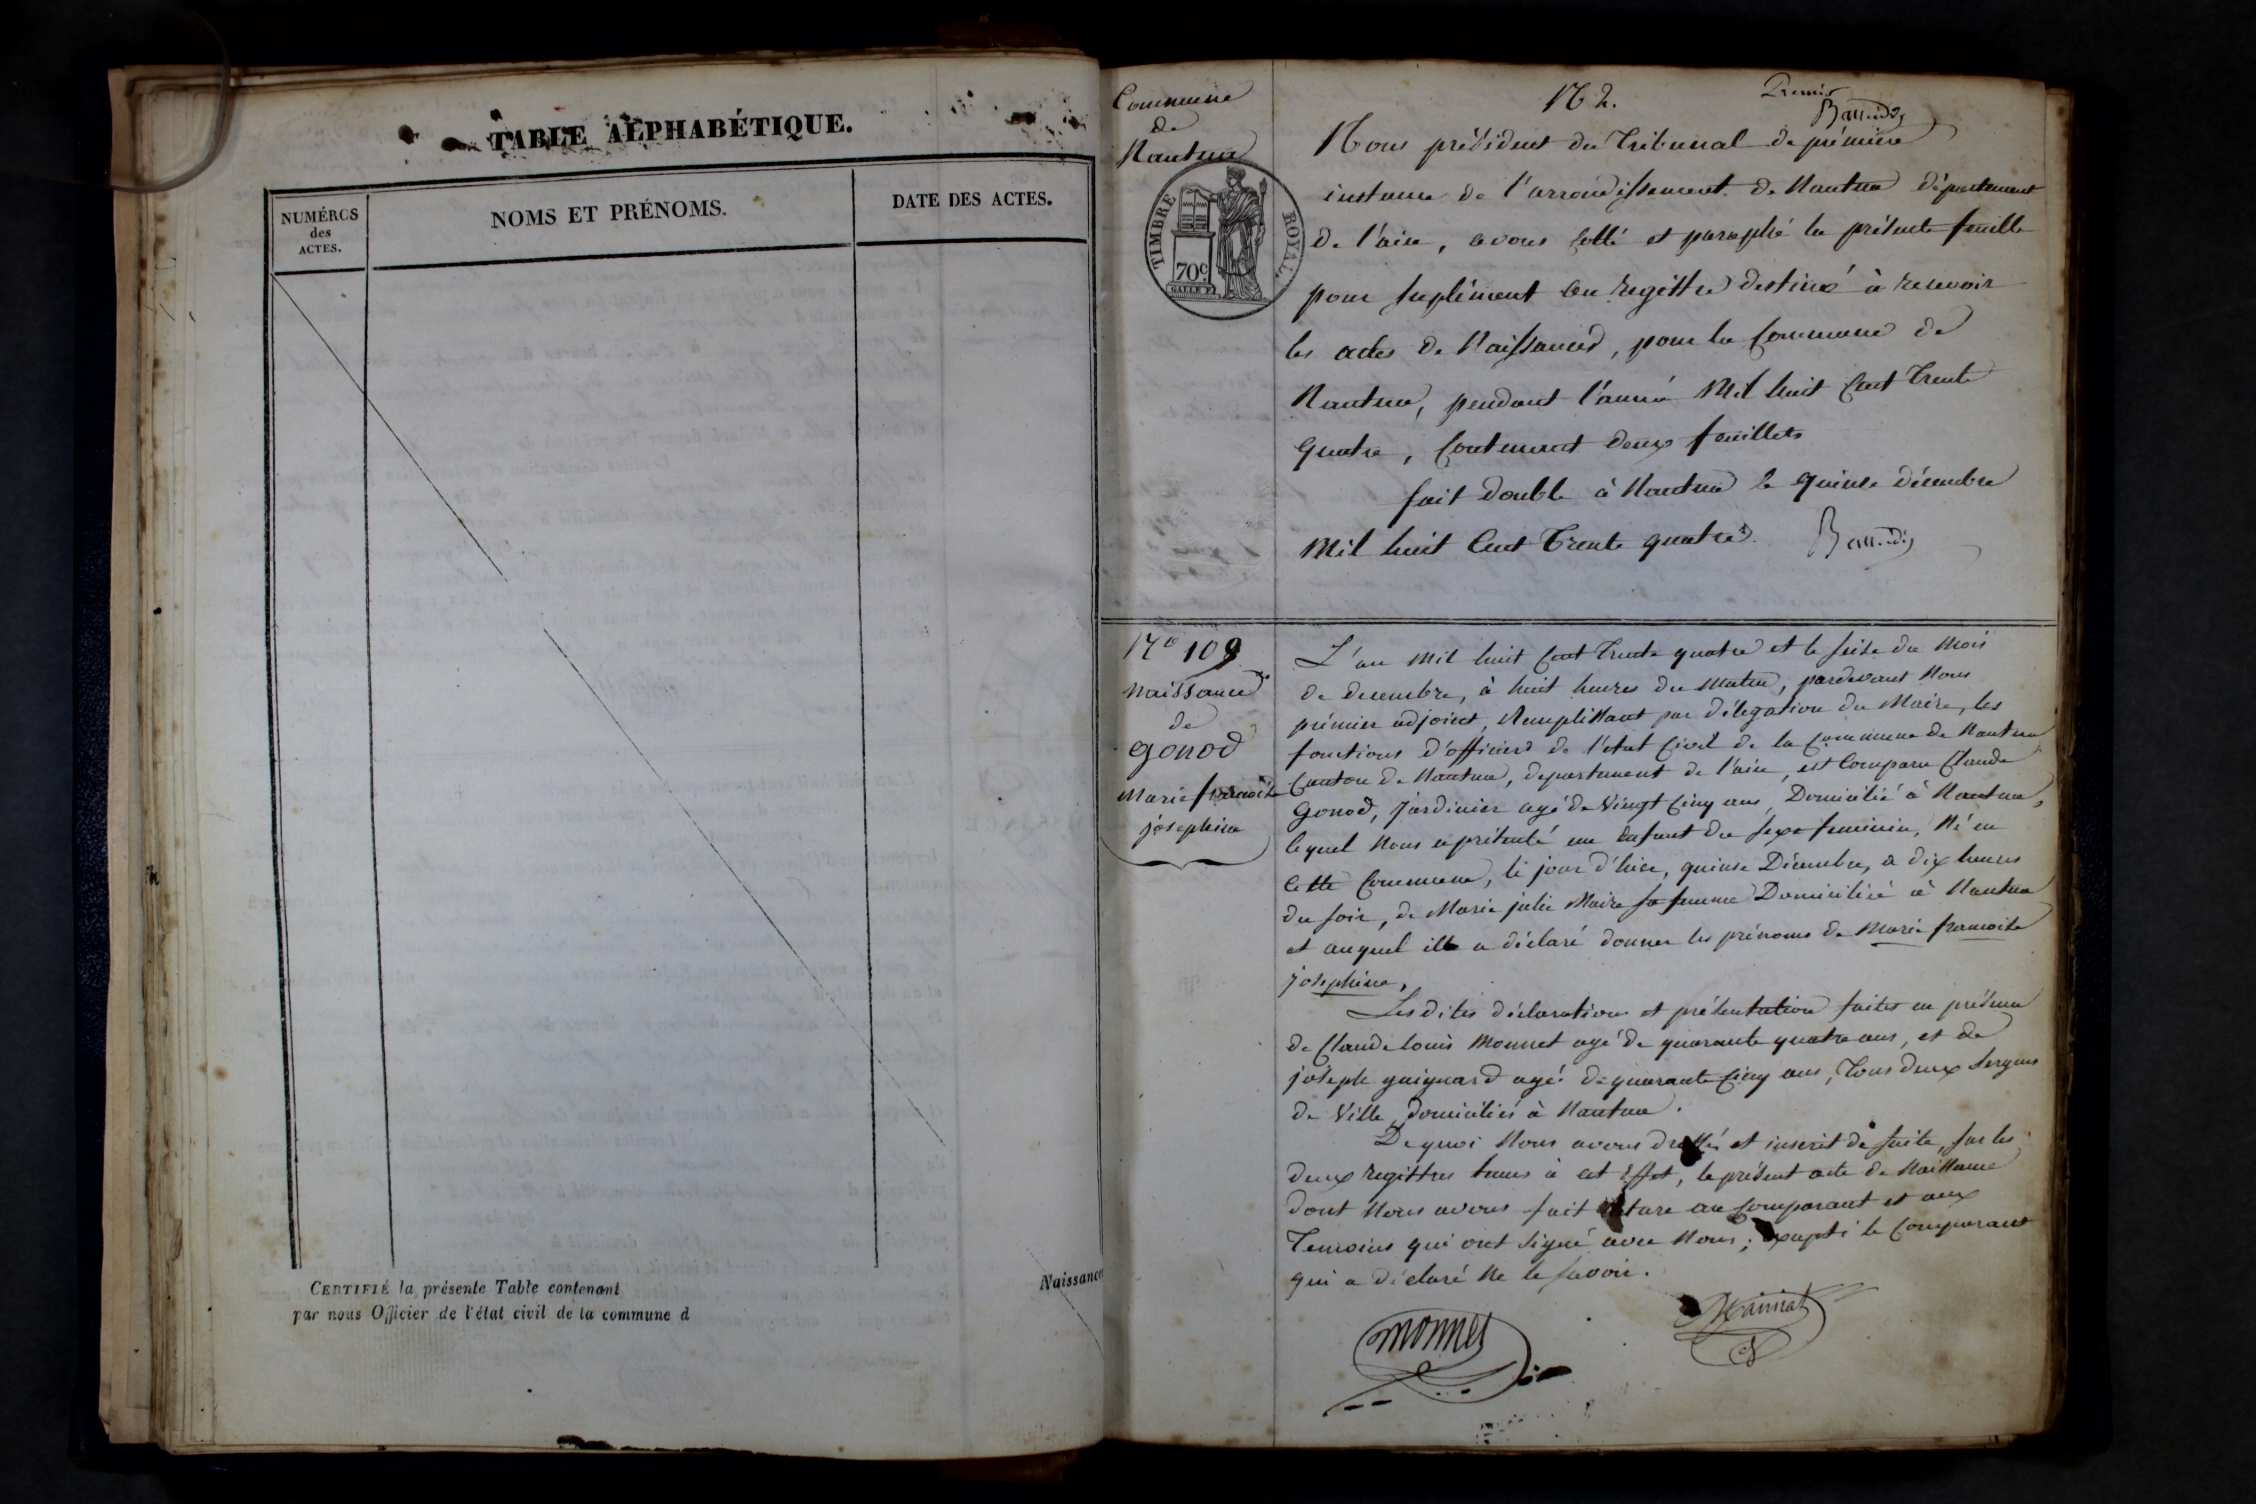 TABLE ALPHABÉTIQUE.
NUMÉROS
des
ACTES.
NOMS ET PRÉNOMS.
DATE DES ACTES.
CERTIFIÉ la présente Table contenant
Naissances
par nous Officier de l'état civil de la commune d
Commune
de
Nantua
TIMBRE ROYAL.
70c
GALLE F.
N° 2.
Premier
Nous président du Tribunal de prémière
instance de l'arrondissement de Nantua département
de l'ain, avons cotté et paraphé la présente feuille
pour suplément au registre destiné à recevoir
les actes de Naissances, pour la Commune de
Nantua, pendant l'année Mil huit Cent Trente
quatre, Contenant deux feuillets
fait double à Nantua le quinze décembre
Mil huit Cent Trente quatre.
N° 109
Naissance
de
gonod
Marie francoise
josephine
L'an mil huit Cent Trente quatre et le seize du Mois
de decembre, à huit heures du matin, pardevant Nous
prémier adjoint, Remplissant par délégation du Maire, les
fonctions d'officier de l'état Civil de la Commune de Nantua
Canton de Nantua, departement de l'ain, est Comparu Claude
gonod, jardinier agé de Vingt Cinq ans, Domicilié à Nantua,
lequel Nous a présenté un Enfant du sexe feminin, Né en
Cette Commune, le jour d'hier, quinze Décembre, à dix heures
du soir, de Marie julie Maire sa femme Domiciliée à Nantua
et auquel ill a déclaré donner les prénoms de Marie francoise
josephine,
Les dites déclaration et présentation faites en présence
de Claude Louis Monnet agé de quarante quatre ans, et de
joseph guignard agé de quarante Cinq ans, Tous deux sergens
de Ville, domiciliés à Nantua.
De quoi Nous avons dressé et inscrit de suite, sur les
deux registres tenus à cet Effet, le présent acte de Naissance
dont Nous avons fait lecture au Comparant et aux
Temoins qui ont signé avec Nous; Exepté le Comparant
qui a déclaré Ne le savoir.
monnet